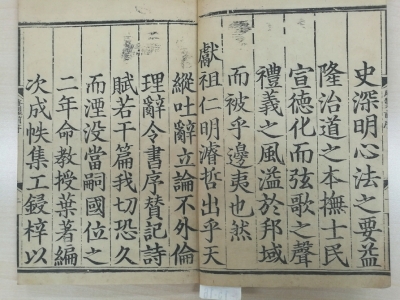 史深明心法之要益
隆治道之本撫士民
宣德化而弦歌之聲
禮義之風溢於邦域
而被乎邊夷也然
獻祖仁明濬哲出乎天
縱吐辭立論不外倫
理辭令書序贊記詩
賦若干篇我切恐久
而湮没當嗣國位之
二年命教授葉著編
次成帙集工鋟梓以